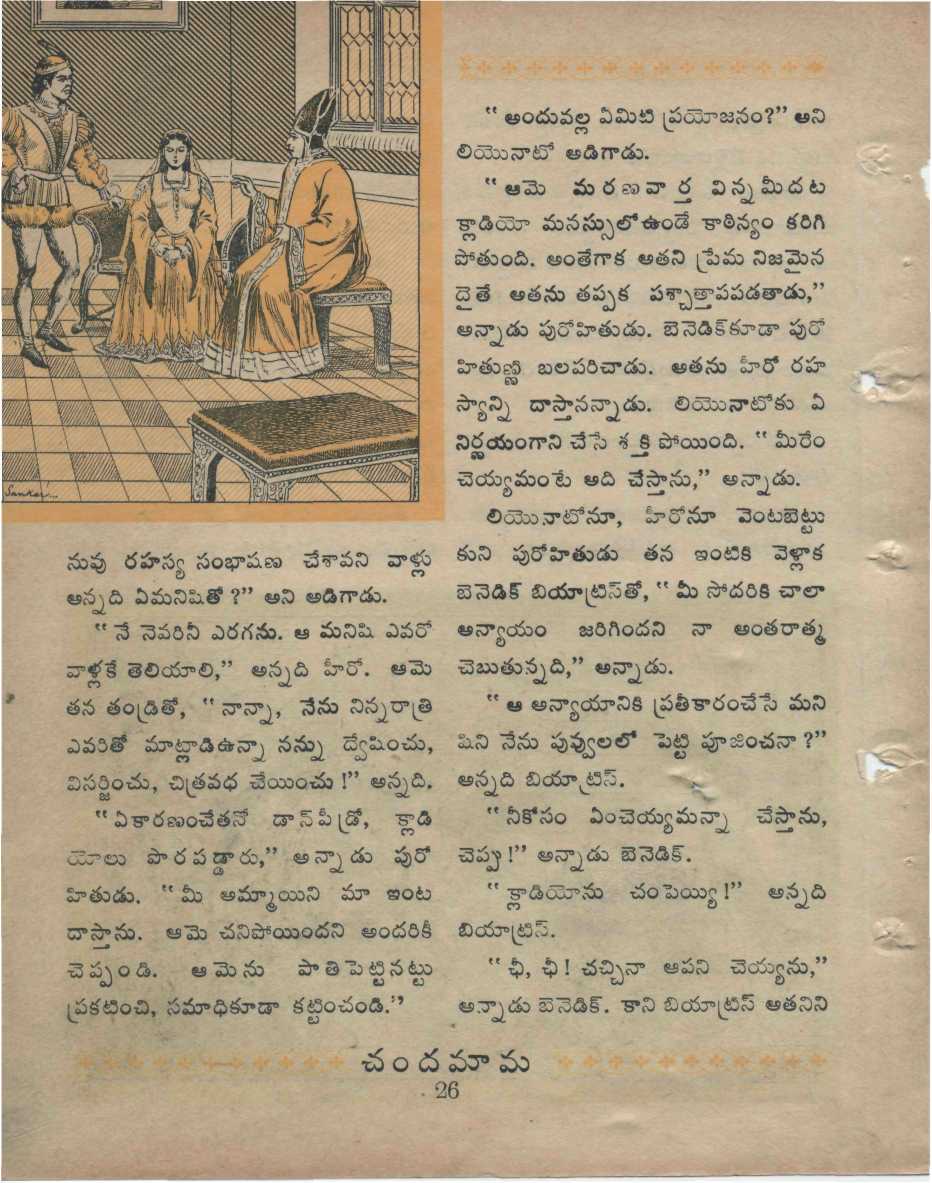 Sankar...
నువు రహస్య సంభాషణ చేశావని వాళ్లు
అన్నది ఏమనిషితో ?” అని అడిగాడు.
“ నే నెవరినీ ఎరగను. ఆ మనిషి ఎవరో
వాళ్లకే తెలియాలి,” అన్నది హీరో. ఆమె
తన తండ్రితో, “ నాన్నా, నేను నిన్నరాత్రి
ఎవరితో మాట్లాడిఉన్నా నన్ను ద్వేషించు,
విసర్జించు, చిత్రవధ చేయించు !” అన్నది.
“ ఏకారణంచేతనో డాన్‌పీడ్రో, క్లాడి
యోలు పొరపడ్డారు,” అన్నాడు పురో
హితుడు. “ మీ అమ్మాయిని మా ఇంట
దాస్తాను. ఆమె చనిపోయిందని అందరికీ
చెప్పండి. ఆమెను పాతిపెట్టినట్టు
ప్రకటించి, సమాధికూడా కట్టించండి.”
“ అందువల్ల ఏమిటి ప్రయోజనం?” అని
లియొనాటో అడిగాడు.
“ ఆమె మరణవార్త విన్నమీదట
క్లాడియో మనస్సులోఉండే కాఠిన్యం కరిగి
పోతుంది. అంతేగాక అతని ప్రేమ నిజమైన
దైతే అతను తప్పక పశ్చాత్తాపపడతాడు,”
అన్నాడు పురోహితుడు. బెనెడిక్‌కూడా పురో
హితుణ్ణి బలపరిచాడు. అతను హీరో రహ
స్యాన్ని దాస్తానన్నాడు. లియొనాటోకు ఏ
నిర్ణయంగాని చేసే శక్తి పోయింది. “ మీరేం
చెయ్యమంటే అది చేస్తాను,” అన్నాడు.
లియొనాటోనూ, హీరోనూ వెంటబెట్టు
కుని పురోహితుడు తన ఇంటికి వెళ్లాక
బెనెడిక్ బియాట్రిస్‌తో, “ మీ సోదరికి చాలా
అన్యాయం జరిగిందని నా అంతరాత్మ
చెబుతున్నది,” అన్నాడు.
“ ఆ అన్యాయానికి ప్రతీకారంచేసే మని
షిని నేను పువ్వులలో పెట్టి పూజించనా ?”
అన్నది బియాట్రిస్.
“ నీకోసం ఏంచెయ్యమన్నా చేస్తాను,
చెప్పు !” అన్నాడు బెనెడిక్.
“ క్లాడియోను చంపెయ్యి !” అన్నది
బియాట్రిస్.
“ ఛీ, ఛీ ! చచ్చినా ఆపని చెయ్యను,”
అన్నాడు బెనెడిక్. కాని బియాట్రిస్ అతనిని
చందమామ
26